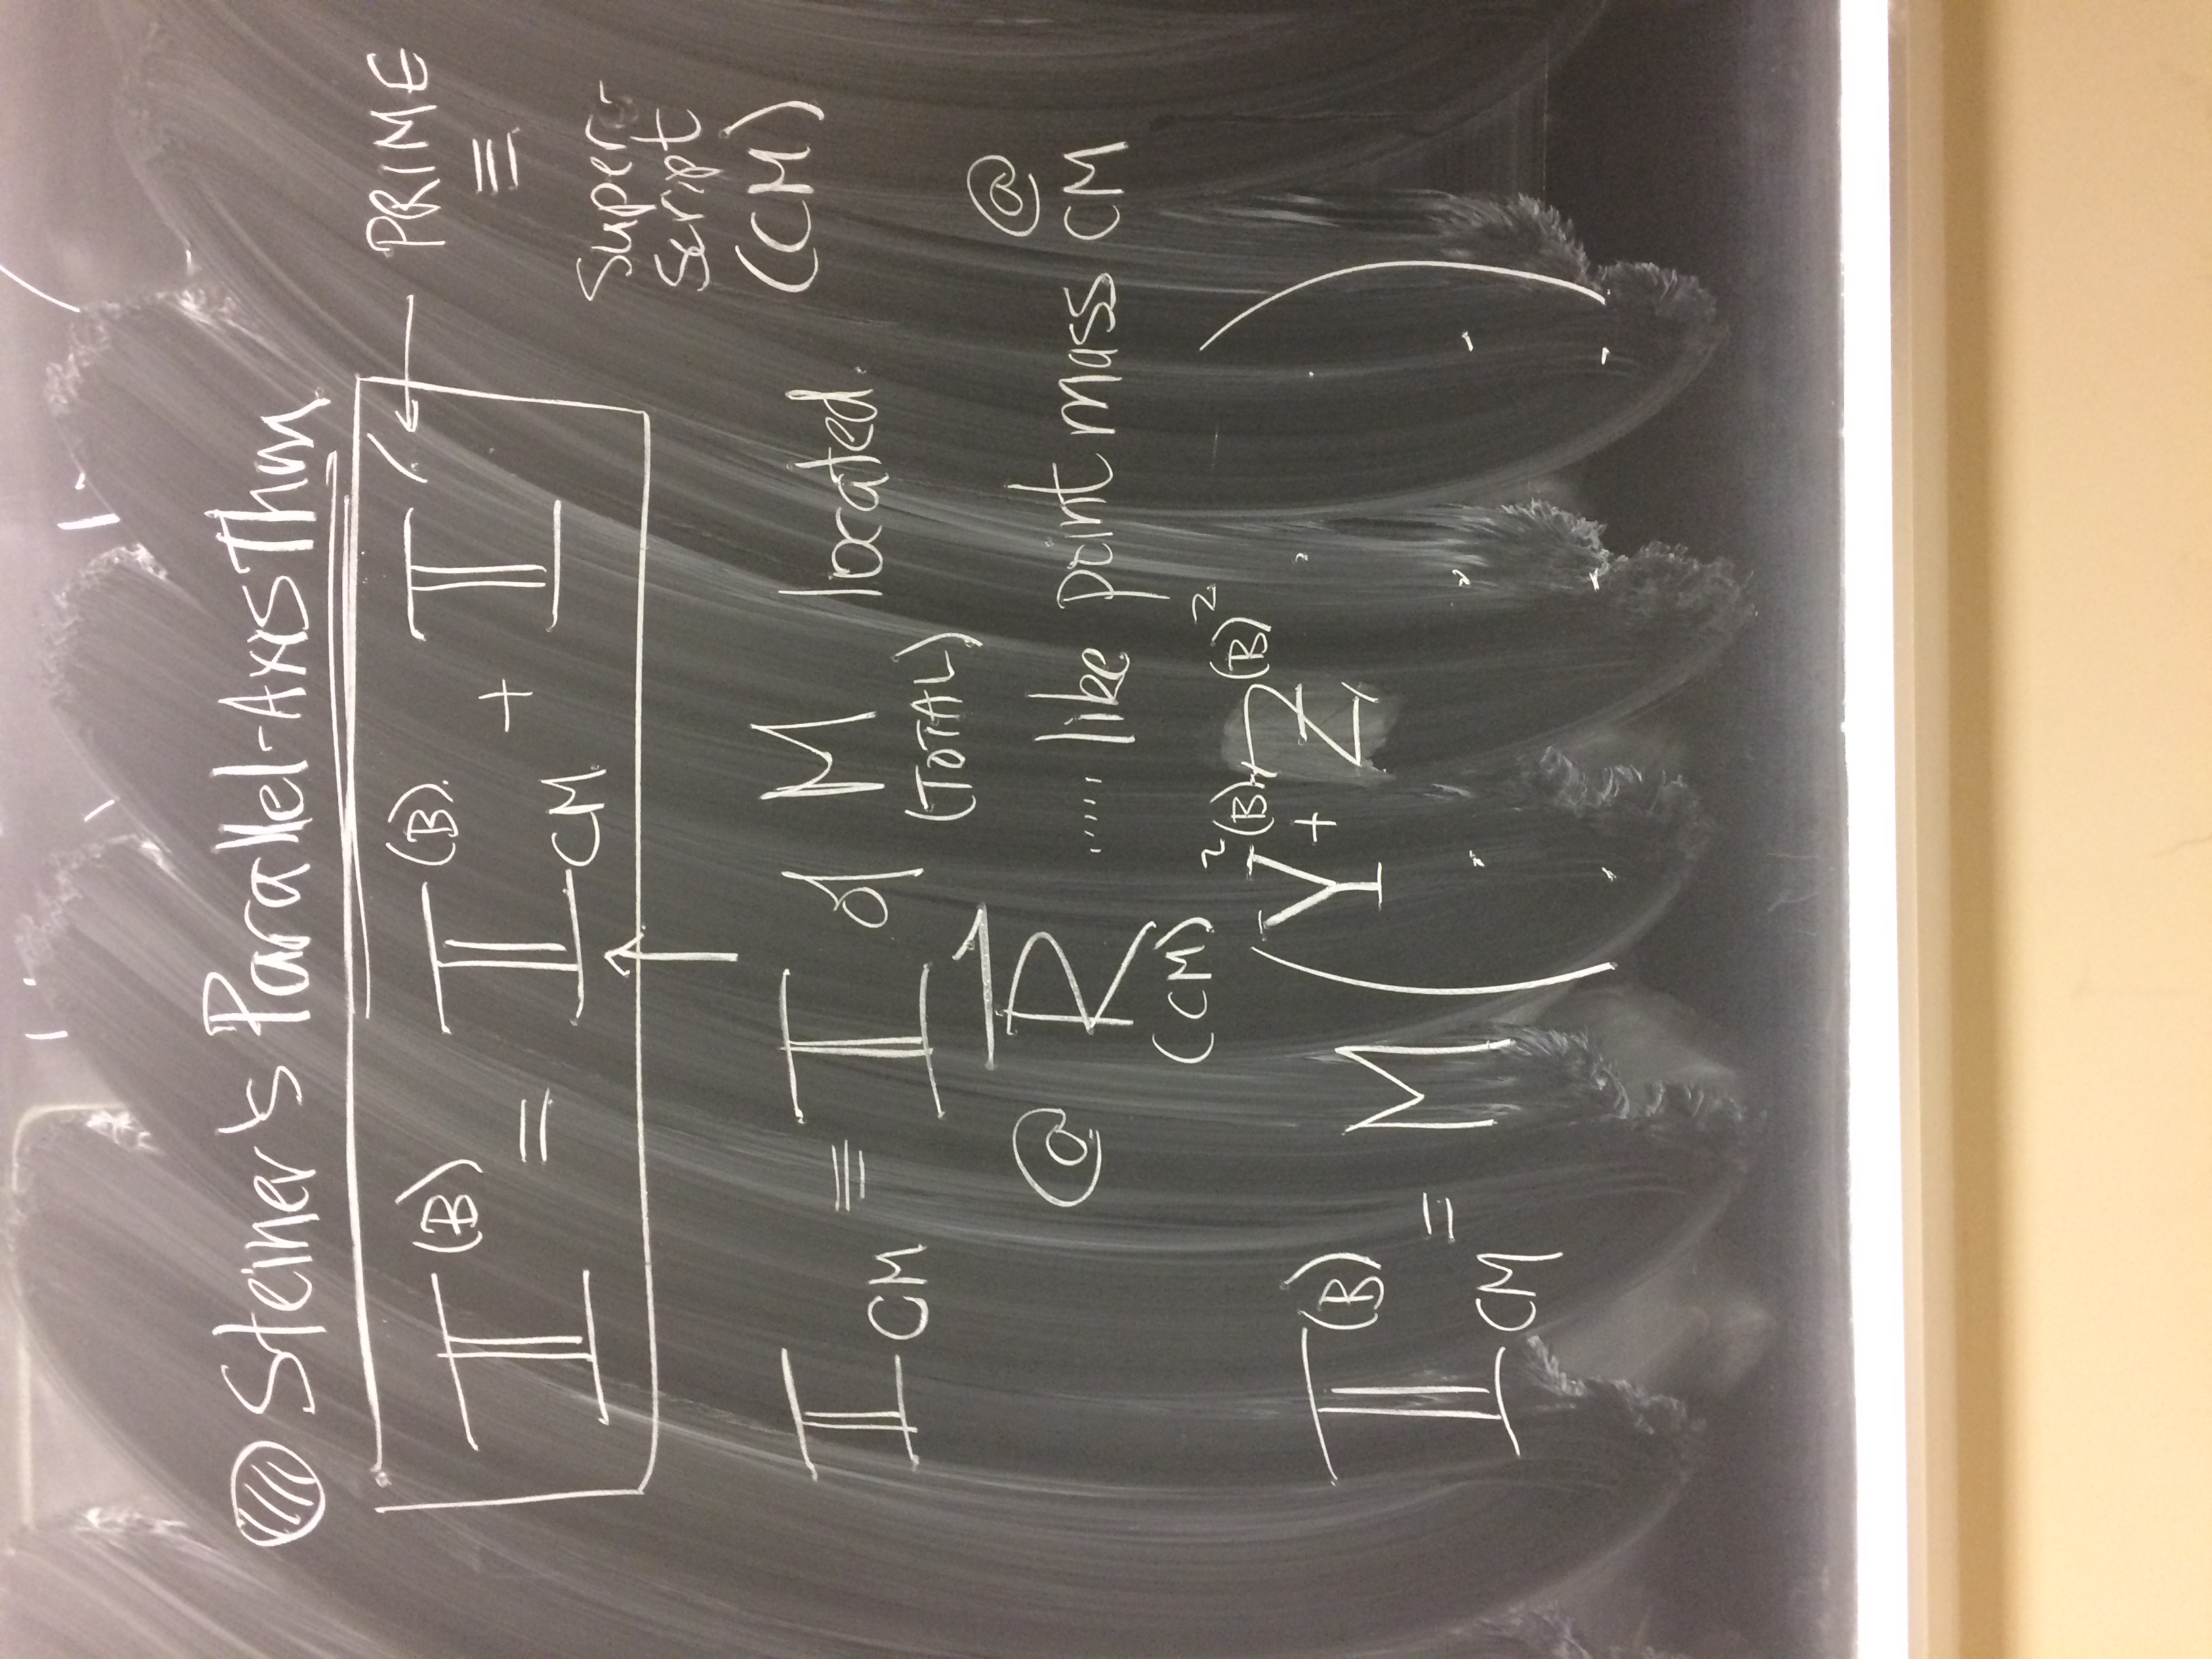 Steiner's Parallel-Axis Thm
𝕀^(B) = 𝕀_CM^(B) + 𝕀′ ← PRIME
≡
Super-
Script
(CM)
↑
𝕀_CM ≡ 𝕀 of M (TOTAL) located
@ R⃗_(CM) ..... like point mass @ CM
𝕀_CM^(B) = M ( Y²^(B) + Z^(B)²